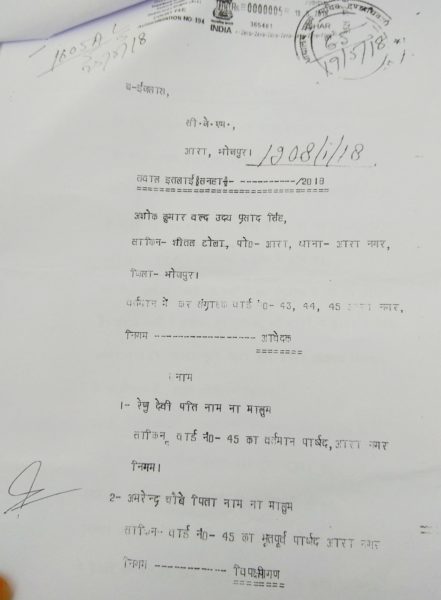 INDIA
0000005
व-ईजलास,
सी.जे.एम.,
आरा, भोजपुर। 1908/i/18
सवाल इतलाई सनहा - ----------/2018
अशोक कुमार वल्द उदय प्रसाद सिंह,
साकिन- शीतल टोला, पो0- आरा, थाना- आरा नगर,
जिला- भोजपुर।
वर्तमान में कर संग्राहक वार्ड नं0- 43, 44, 45 आरा नगर,
निगम ------------------- आवेदक
नाम
1- रेणु देवी पति नाम ना मालुम
साकिन- वार्ड नं0- 45 का वर्तमान पार्षद, आरा नगर
निगम।
2- अमरेन्द्र चौबे पिता नाम ना मालुम
साकिन- वार्ड नं0- 45 का भूतपूर्व पार्षद आरा नगर
निगम -------------- विपक्षीगण